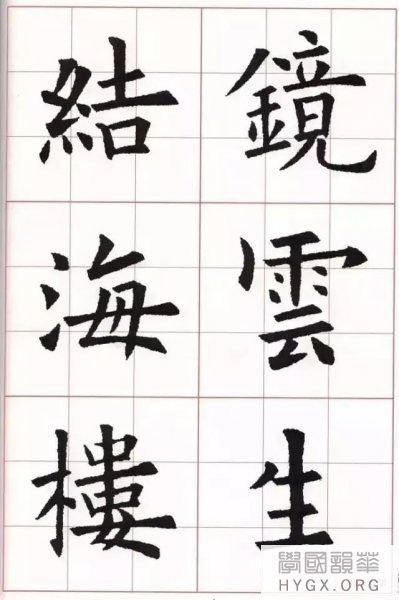 鏡雲生
結海樓
華韻國學
HYGX.ORG